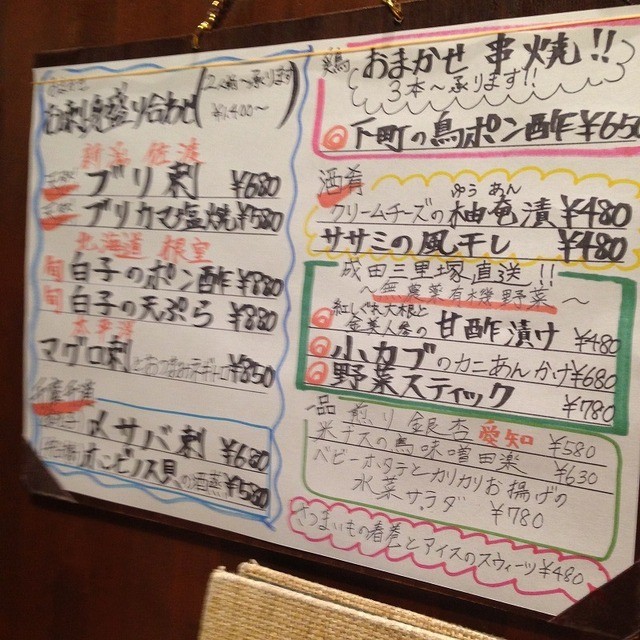 お刺身盛り合わせ
(2人前〜承ります
¥1,400〜)
新潟 佐渡
ブリ刺 ¥680
ブリカマ塩焼 ¥580
北海道 根室
旬 白子のポン酢 ¥880
旬 白子の天ぷら ¥880
マグロ刺 ¥850
〆サバ刺 ¥680
の酒蒸 ¥580
おまかせ 串焼!!
3本〜承ります!!
下町の鳥ポン酢 ¥650
酒肴
ゆうあん
クリームチーズの柚庵漬 ¥480
ササミの風干し ¥480
成田三里塚直送!!
〜無農薬有機野菜〜
紅しぐれ大根と
甘酢漬け ¥480
小カブのカニあんかけ ¥680
野菜スティック ¥780
一品 煎り銀杏 愛知 ¥580
米ナスの鳥味噌田楽 ¥630
ベビーホタテとカリカリお揚げの
水菜サラダ ¥780
さつまいもの春巻とアイスのスウィーツ ¥480